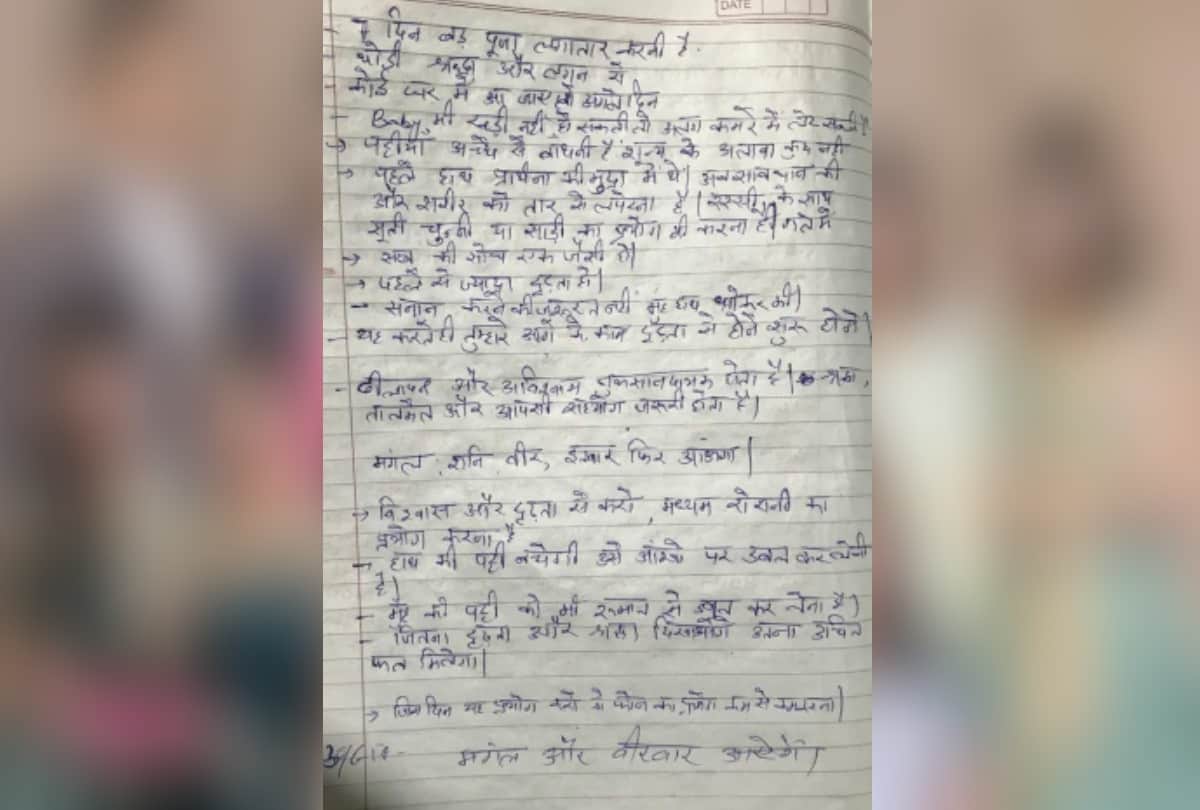 DATE
- 7 दिन बड़ पूजा लगातार करनी है.
थोड़ी श्रद्धा और लगन से
- कोई घर में आ जाए तो अगले दिन
- Baby भी खड़ी नहीं हो सकती तो अलग कमरे में लेट सकती है
→ पट्टीयाँ अच्छे से बांधनी है शून्य के अलावा कुछ नहीं
→ पहले हाथ प्रार्थना की मुद्रा में थे। अब सावधान की
और शरीर को तार से लपेटना है। रस्सी के साथ
सूती चुन्नी या साड़ी का प्रयोग ही करना है। गले में
→ सब की सोच एक जैसी हो।
→ पहले से ज्यादा दृढ़ता हो।
- सनान करने की जरूरत नहीं मुंह हाथ धोकर की।
- यह करते ही तुम्हारे आगे के काम दृढ़ता से होने शुरू होंगे।
- ढीलापन और अविश्वास नुकसानदायक होता है।
तालमेल और आपसी सहयोग जरूरी होता है।
मंगल, शनि, वीर, इतवार फिर आऊंगा।
→ विश्वास और दृढ़ता से करो, मध्यम रोशनी का
प्रयोग करना है
- हाथ की पट्टी बचेगी उसे आंखो पर डबल कर लेनी
है।
- मुंह की पट्टी को भी रूमाल से डबल कर लेना है।
- जितना दृढ़ता और श्रद्धा दिखाओगे उतना उचित
फल मिलेगा।
→ जिस दिन यह प्रयोग करो फोन का प्रयोग कम से कम करना।
मंगल और वीरवार आयेंगे।